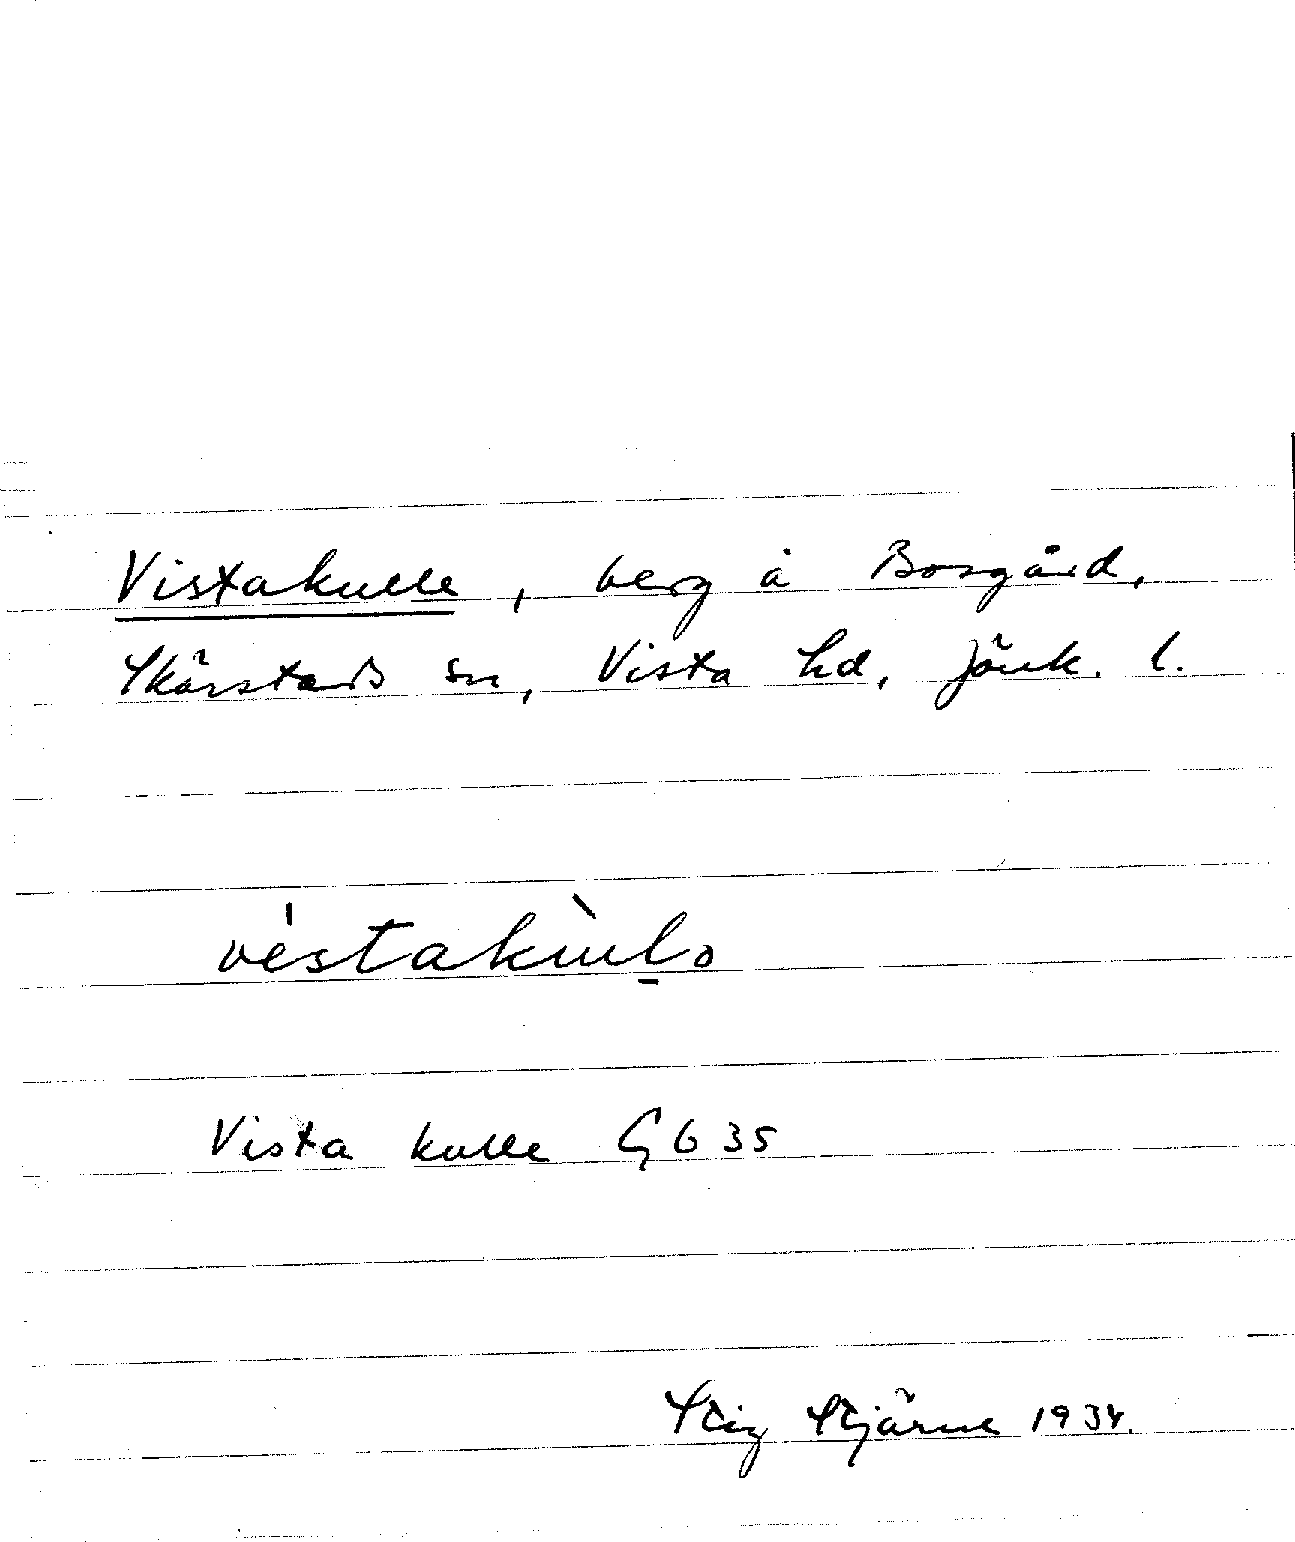 Vistakulle, berg å Bosgård,
Skärstads sn, Vista hd, Jönk. l.
vèstakùlo
Vista kulle G 6 35
Stig Stjärne 1934.